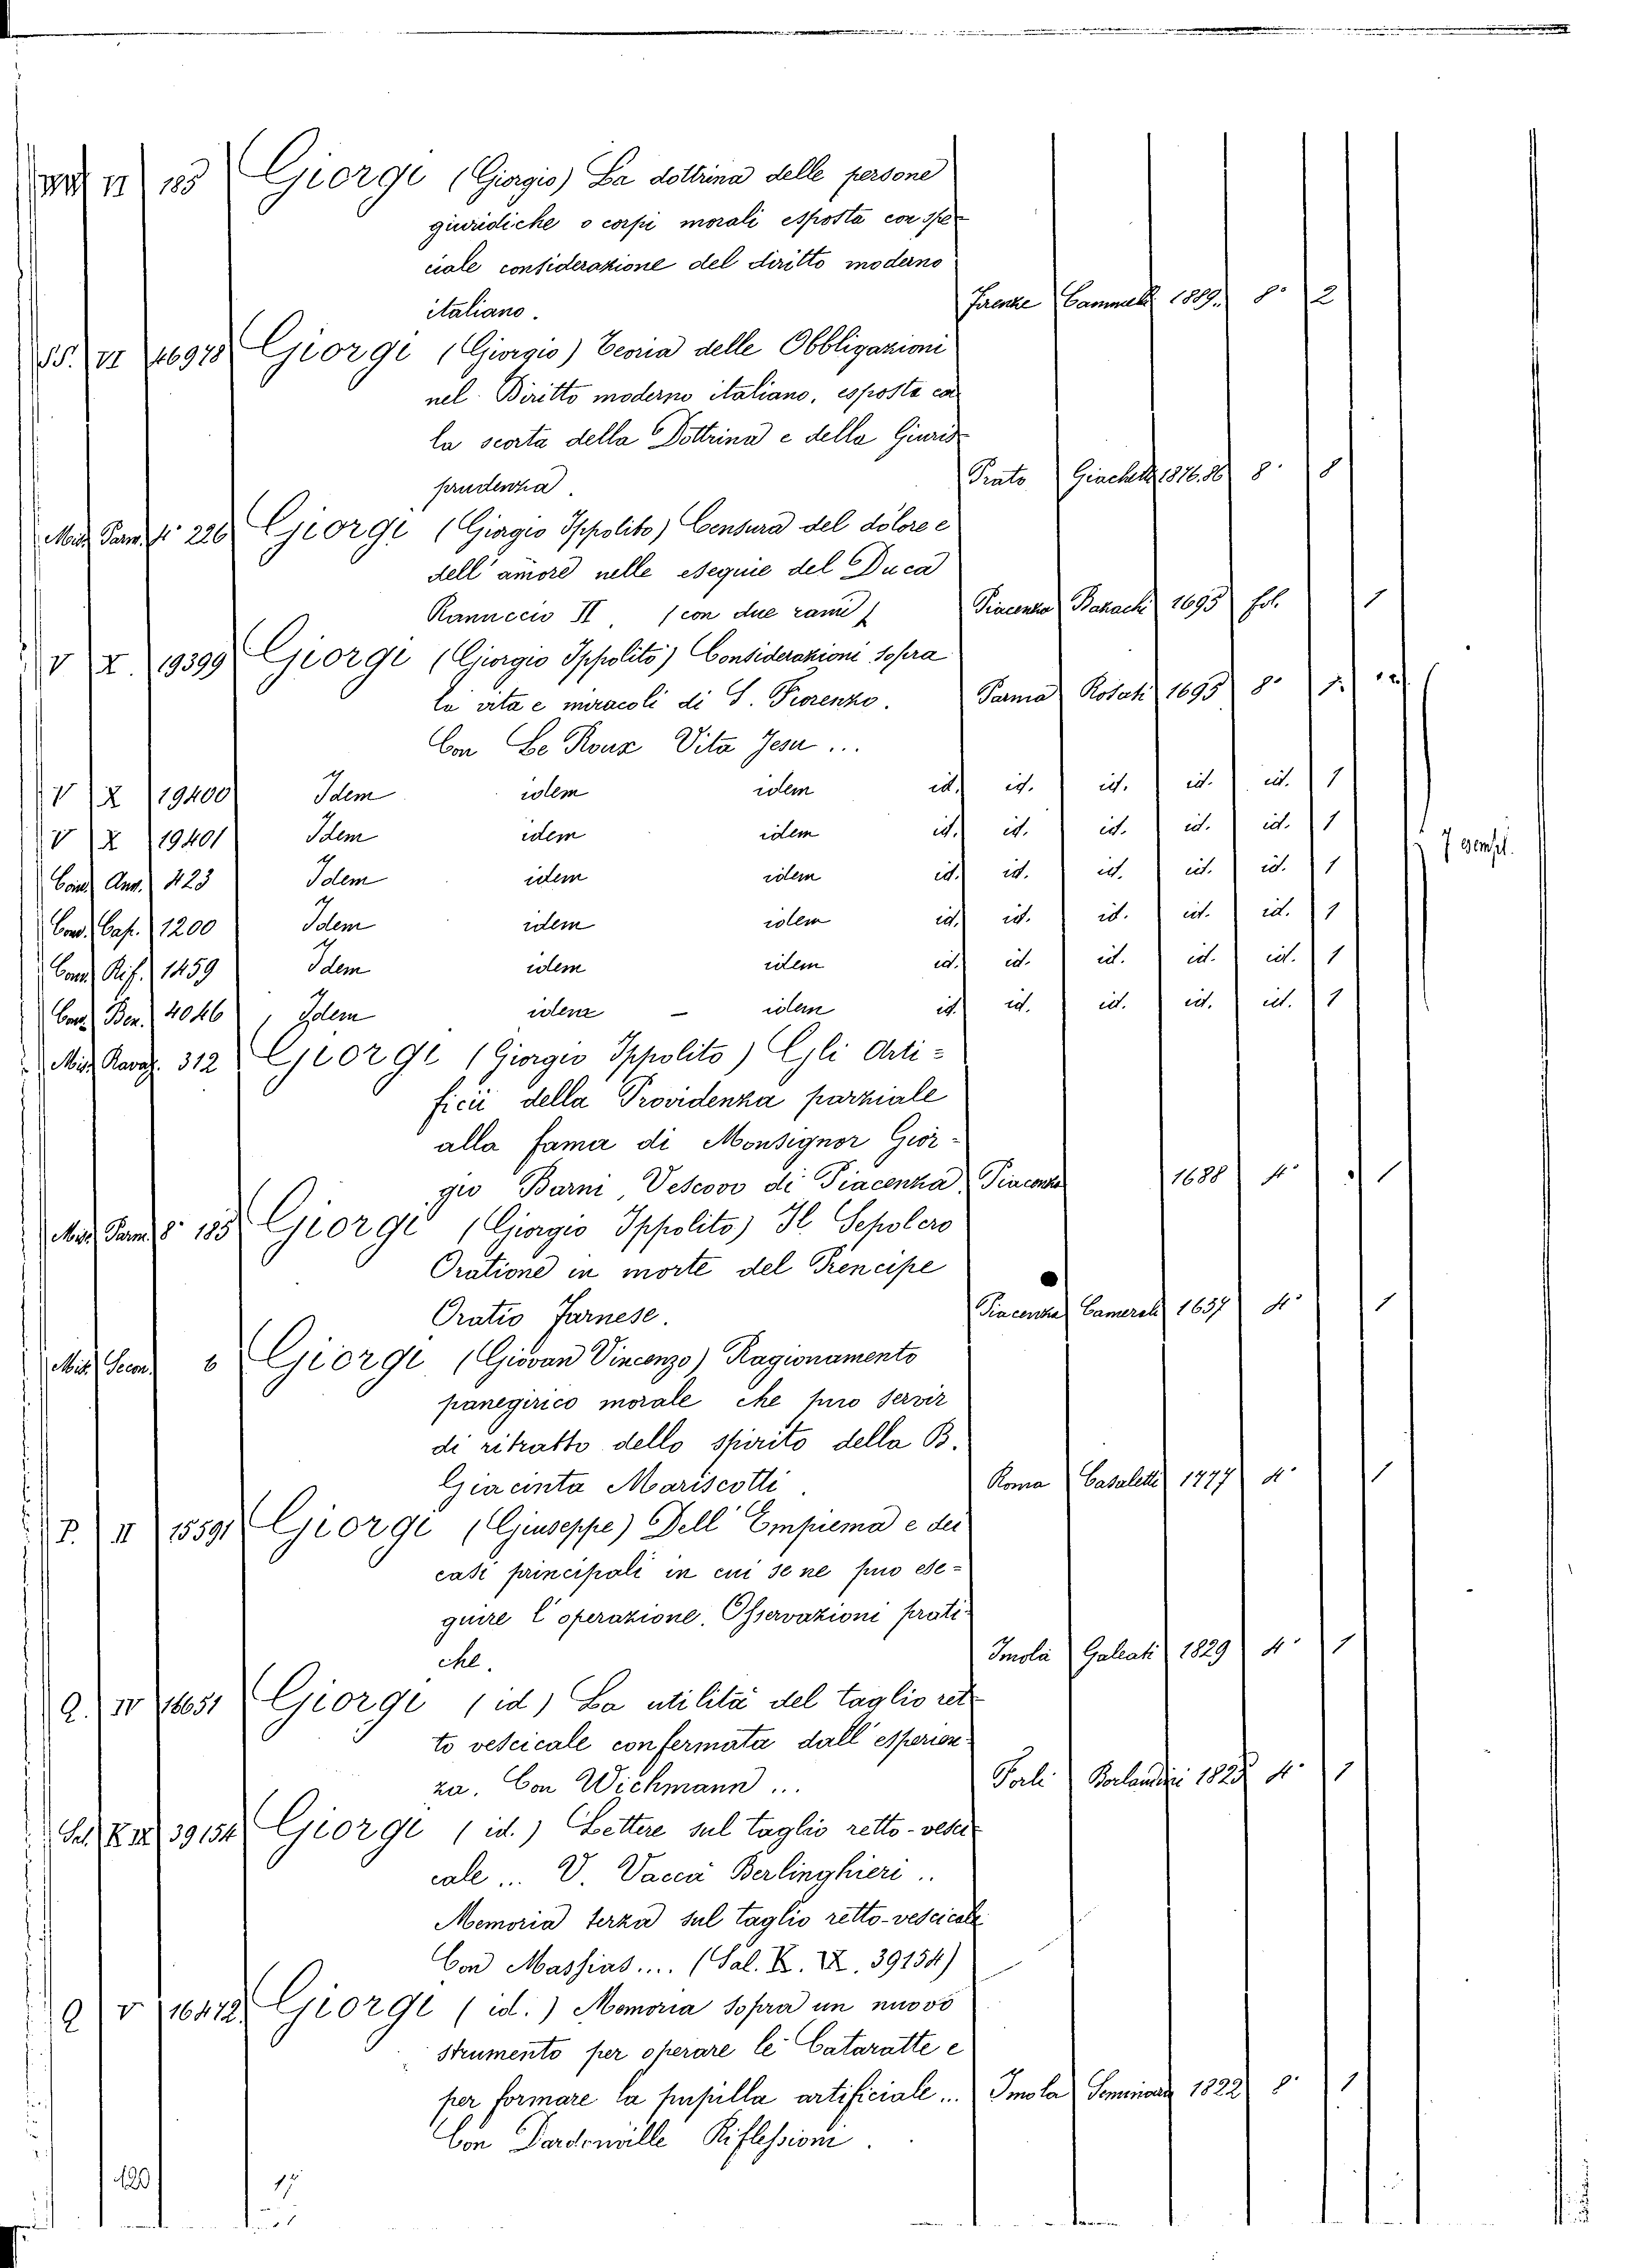 II 185 Giorgi (Giorgio) La dottrina delle persone
giuridiche o corpi morali esposta con spe
ciale considerazione del diritto moderno
italiano. Firenze Cammelli 1889. 8° 2
SS. VI 46978 Giorgi (Giorgio) Teoria delle Obbligazioni
nel Diritto moderno italiano, esposta con
la scorta della Dottrina e della Giuris
prudenza. Prato Giachetti 1876.86 8° 8
Misc. Parm. f° 226 Giorgi (Giorgio Ippolito) Censura del dolore e
dell'amore nelle esequie del Duca
Rannccio II. (con due rami) Piacenza Bazachi 1695 fol. 1
V X. 19399 Giorgi (Giorgio Ippolito) Considerazioni sopra
la vita e miracoli di S. Fiorenzo. Parma Rosati 1695 8° 1.
Con Le Roux Vita Jesu ...
V X 19400 Idem idem idem id. id. id. id. id. 1
V X 19401 Idem idem idem id. id. id. id. id. 1
7 esempl.
Cons. Ans. 423 Idem idem idem id. id. id. id. id. 1
Cons. Cap. 1200 Idem idem idem id. id. id. id. id. 1
Cons. Rif. 1459 Idem idem idem id. id. id. id. id. 1
Cons. Ben. 4046 Idem idem – idem id. id. id. id. id. 1
Misc. Ravaz. 312 Giorgi (Giorgio Ippolito) Gli Arti=
ficii della Providenza parziale
alla fama di Monsignor Gior-
gio Barni, Vescovo di Piacenza Piacenza 1688 4° 1
Misc. Parm. 8° 185 Giorgi (Giorgio Ippolito) Il Sepolcro
Oratione in morte del Prencipe
Oratio Farnese. Piacenza Camerali 1657 4° 1
Misc. Secon. 6 Giorgi (Giovan Vincenzo) Ragionamento
panegirico morale che può servir
di ritratto dello spirito della B.
Giacinta Mariscotti. Roma Casaletti 1777 4° 1
P. II 15591 Giorgi (Giuseppe) Dell'Empiema e dei
casi principali in cui se ne può ese=
guire l'operazione. Osservazioni prati-
che. Imola Galeati 1829 4° 1
Q. IV 16651 Giorgi (id) La utilità del taglio ret
to vescicale confermata dall'esperien-
za. Con Wichmann ... Forlì Borlandini 1825 4° 1
Sal. K. IX 39154 Giorgi (id.) Lettere sul taglio retto-vesci
cale ... V. Vaccà Berlinghieri ..
Memoria terza sul taglio retto-vescicale
Con Massias.... (Sal. K. IX. 39154)
Q V 16472 Giorgi (id.) Memoria sopra un nuovo
strumento per operare le Cataratte e
per formare la pupilla artificiale ... Imola Seminario 1822 8° 1
Con Dardonville Riflessioni.
120 17